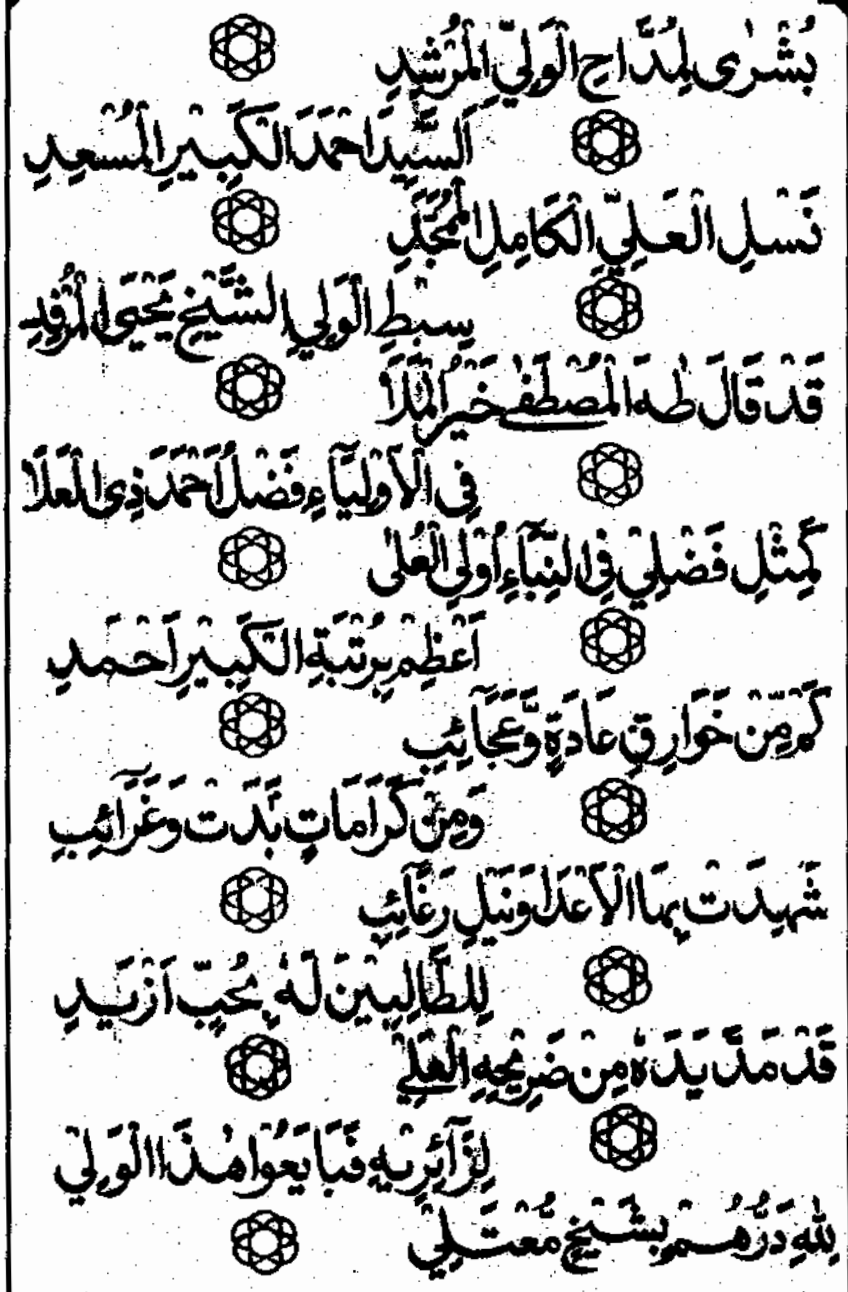 بُشْرٰى لِمُدَّاحِ الْوَلِيِّ الْمُرْشِدِ
اَلسَّيِّدَ اَحْمَدَ الْكَبِيْرِ الْمُسْعِدِ
نَسْلِ الْعَلِيِّ الْكَامِلِ الْمُمَجَّدِ
سِبْطِ الْوَلِيِ الشَّيْخِ يَحْيَى الْمُرْفِدِ
قَدْ قَالَ طٰهَ الْمُصْطَفٰى خَيْرُ الْمَلَاَ
فِى الْاَوْلِيَآءِ فَضْلُ اَحْمَدَ ذِى الْعَلَا
كَمِثْلِ فَضْلِيْ فِى النِّبَآءِ اُولِى الْعُلٰى
اَعْظِمْ بِرُتْبَةِ الْكَبِيْرِ اَحْمَدِ
كَمْ مِّنْ خَوَارِقِ عَادَةٍ وَّعَجَآئِبِ
وَمِنْ كَرَامَاتٍ بَّدَتْ وَغَرَآئِبِ
شَهِدَتْ بِهَا الْاَعْدَا وَنَيْلِ رَغَآئِبِ
لِلطَّالِبِيْنَ لَهٗ بِحُبٍّ اَزْيَدِ
قَدْ مَدَّ يَدَهٗ مِنْ ضَرِيْحِهِ الْعَلِيْ
لِزَآئِرِيْهِ فَبَايَعُوْا هٰذَا الْوَلِيْ
لِلّٰهِ دَرُّهُمْ بِشَيْخٍ مُّعْتَلِيْ